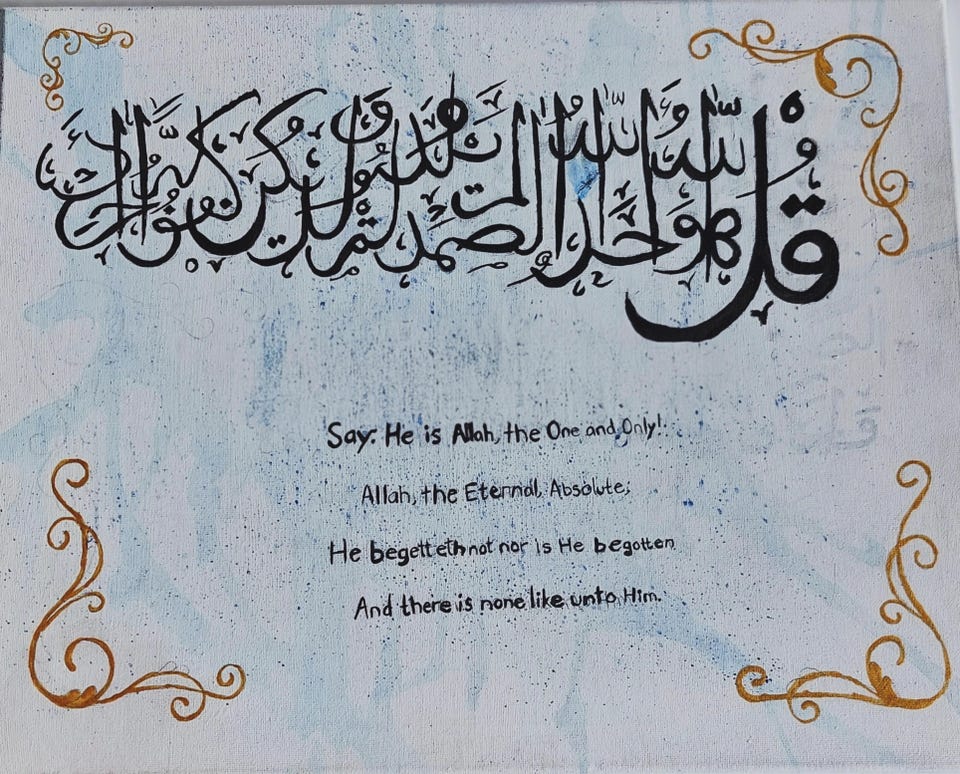 قل هو الله احد الله الصمد لم يلد ولم يولد ولم يكن له كفوا احد
Say: He is Allah, the One and Only!
Allah, the Eternal, Absolute;
He begetteth not nor is He begotten
And there is none like unto Him.